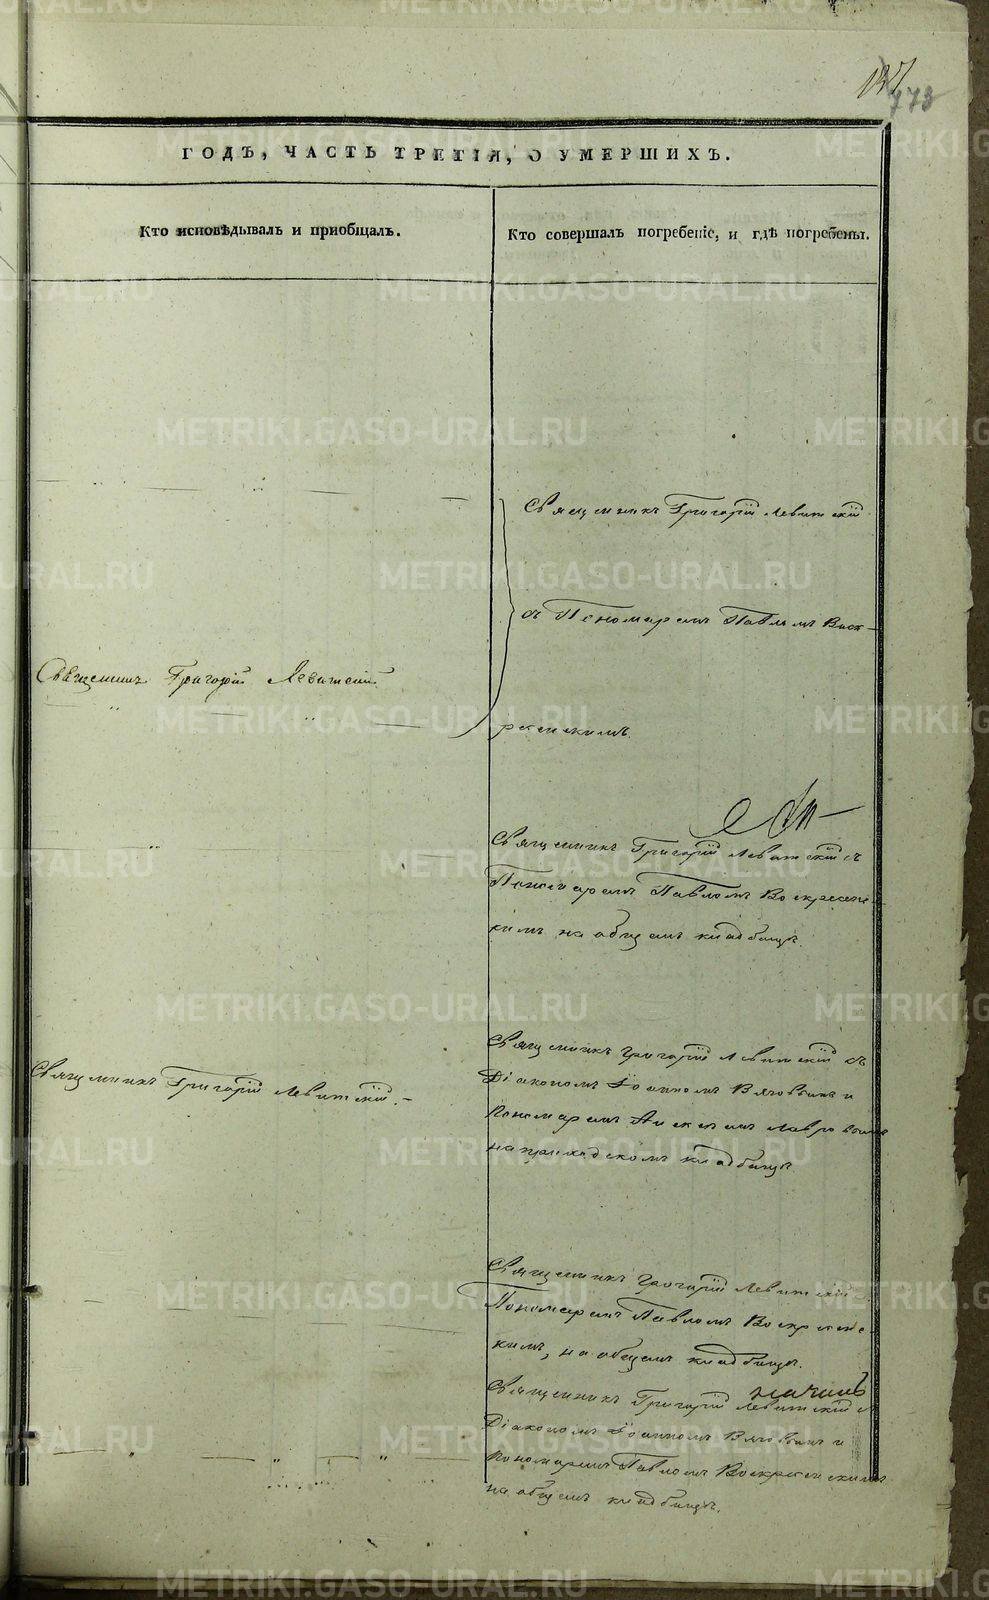 773
ГОДЪ, ЧАСТЬ ТРЕТІЯ, О УМЕРШИХЪ.
Кто исповѣдывалъ и пріобщалъ.
Кто совершалъ погребеніе, и гдѣ погребены.
Священникъ Григорій Левитскій
съ Пономаремъ Павломъ Воск-
ресенскимъ.
Священникъ Григорій Левитскій
Священникъ Григорій Левитскій съ
Пономаремъ Павломъ Воскресенс-
кимъ на общемъ кладбищѣ.
Священникъ Григорій Левитскій.
Священникъ Григорій Левитскій съ
Діакономъ Іоанномъ и
Пономаремъ Лавровымъ
на приходскомъ кладбищѣ
Священникъ Григорій Левитскій
Пономаремъ Павломъ Воскресенс-
кимъ, на общемъ кладбищѣ.
Священникъ Григорій Левитскій съ
Діакономъ Іоанномъ и
Пономаремъ Павломъ Воскресенскимъ
на общемъ кладбищѣ.
METRIKI.GASO-URAL.RU